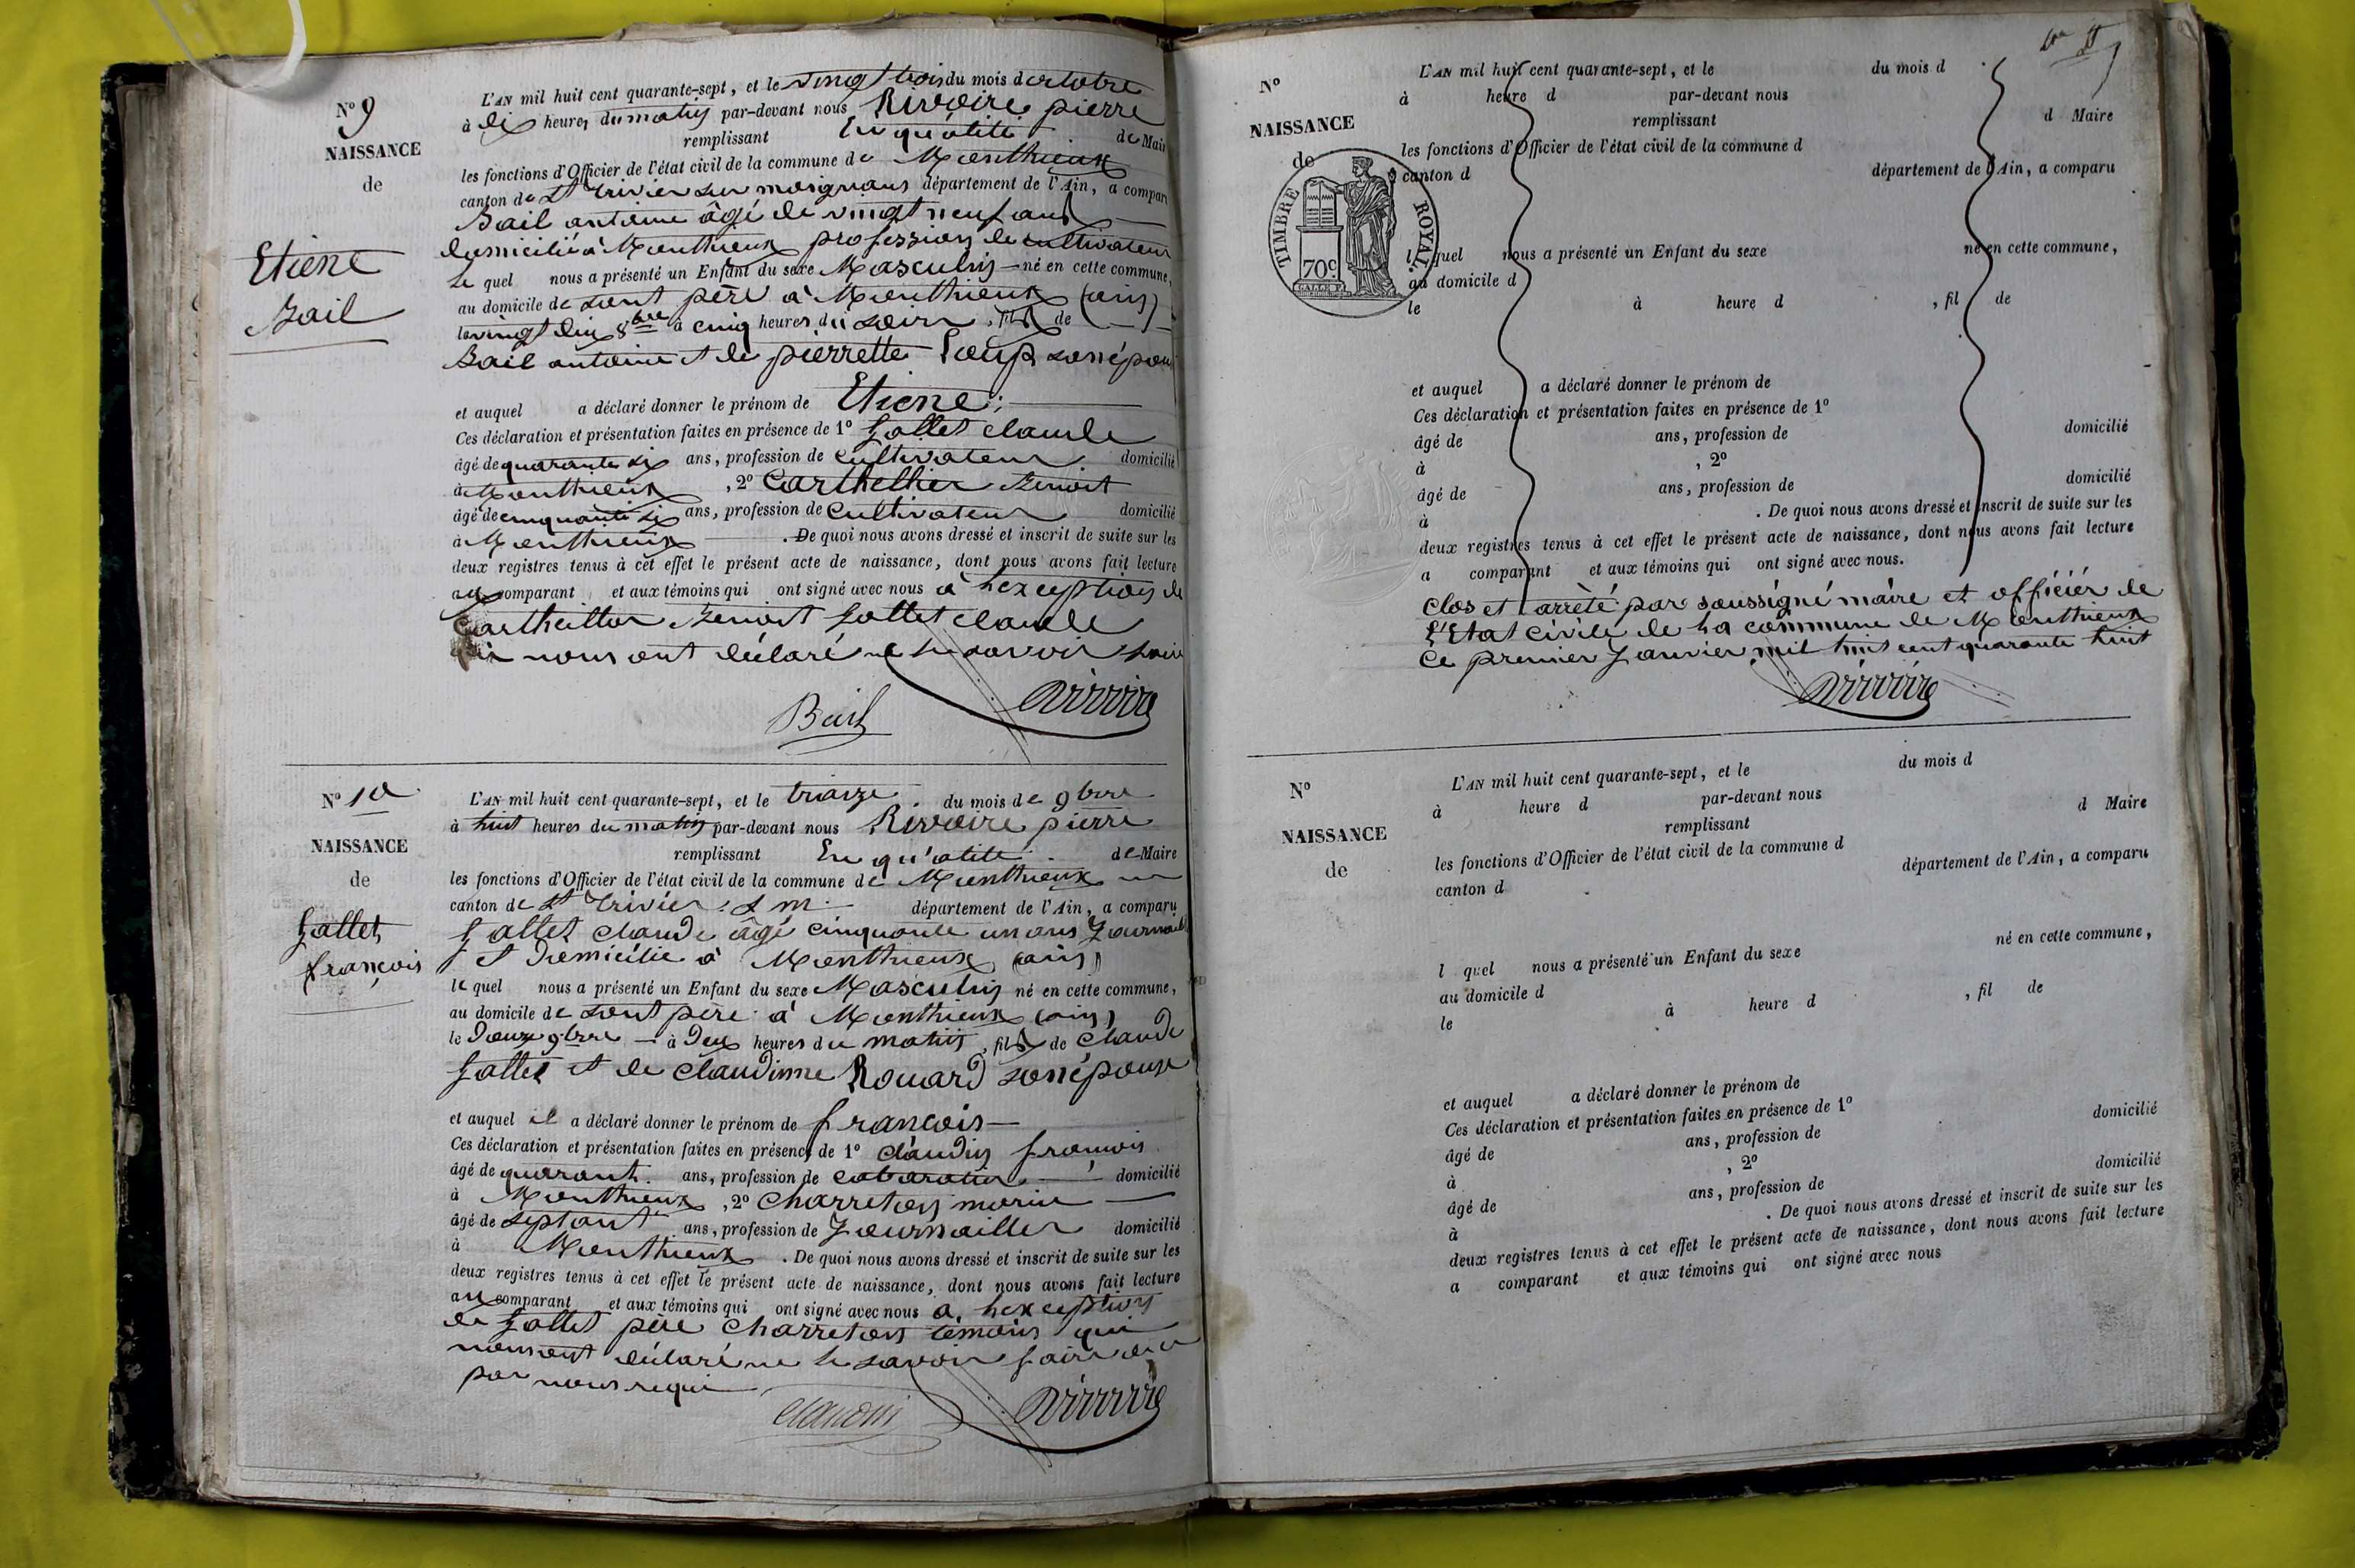 N° 9
NAISSANCE
de
Etiene
Bail
L'AN mil huit cent quarante-sept, et le vingt trois du mois d octobre
à dix heures du matin par-devant nous Rivoire pierre
remplissant En quatité de Maire
les fonctions d'Officier de l'état civil de la commune de Monthieux
canton de St trivier sur moignans département de l'Ain, a comparu
Bail antoine âgé de vingt neuf ans
domicilié à Monthieux profession de cultivateur
Le quel nous a présenté un Enfant du sexe Masculin né en cette commune,
au domicile de sont père à Monthieux (ain)
le vingt deux 8bre à cinq heures du soir, fils de
Bail antoine et de pierrette Loup son épouse
et auquel a déclaré donner le prénom de Etiene;
Ces déclaration et présentation faites en présence de 1° Gallet claude
âgé de quarante six ans, profession de Cultivateur domicilié
à Monthieux, 2° Carthellier Benoit
âgé de cinquante six ans, profession de Cultivateur domicilié
à Monthieux. De quoi nous avons dressé et inscrit de suite sur les
deux registres tenus à cet effet le présent acte de naissance, dont nous avons fait lecture
au comparant et aux témoins qui ont signé avec nous à Lexception de
Benoit Gallet claude
nous ont déclaré ne le savoir faire
Bail
N° 10
NAISSANCE
de
Gallet
françois
L'AN mil huit cent quarante-sept, et le traize du mois de 9bre
à huit heures du matin par-devant nous Rivoire pierre
remplissant En qu'atité de Maire
les fonctions d'Officier de l'état civil de la commune de Monthieux
canton de St Trivier s m département de l'Ain, a comparu
Gallet claude âgé cinquante un ans
et Domicilie à Monthieux (ain)
le quel nous a présenté un Enfant du sexe Masculin né en cette commune,
au domicile de sont père à Monthieux (ain)
le Douze 9bre à Deux heures du matin, fils de Claude
Gallet et de claudinne Rouard son épouse
et auquel il a déclaré donner le prénom de françois
Ces déclaration et présentation faites en présence de 1° claudin françois
âgé de quarant. ans, profession de cabaratier domicilié
à Monthieux, 2° Charreton marin
âgé de septant ans, profession de Journaillier domicilié
à Monthieux. De quoi nous avons dressé et inscrit de suite sur les
deux registres tenus à cet effet le présent acte de naissance, dont nous avons fait lecture
au comparant et aux témoins qui ont signé avec nous a. Lexception
de Gallet père Charreton témoin qui
nous ont déclaré ne le savoir faire de ce
par nous requi
claudin
N°
NAISSANCE
de
TIMBRE ROYAL
70c
L'AN mil huit cent quarante-sept, et le du mois d
à heure d par-devant nous
remplissant d Maire
les fonctions d'Officier de l'état civil de la commune d
canton d département de l'Ain, a comparu
l quel nous a présenté un Enfant du sexe né en cette commune,
au domicile d
le à heure d, fil de
et auquel a déclaré donner le prénom de
Ces déclaration et présentation faites en présence de 1°
âgé de ans, profession de domicilié
à, 2°
âgé de ans, profession de domicilié
à. De quoi nous avons dressé et inscrit de suite sur les
deux registres tenus à cet effet le présent acte de naissance, dont nous avons fait lecture
a comparant et aux témoins qui ont signé avec nous.
Clos et arrèté par soussigné maire et officier de
L'Etat civile de La commune de Monthieux
Ce premier Janvier mil huit cent quarante huit
N°
NAISSANCE
de
L'AN mil huit cent quarante-sept, et le du mois d
à heure d par-devant nous
remplissant d Maire
les fonctions d'Officier de l'état civil de la commune d
canton d département de l'Ain, a comparu
l quel nous a présenté un Enfant du sexe né en cette commune,
au domicile d
le à heure d, fil de
et auquel a déclaré donner le prénom de
Ces déclaration et présentation faites en présence de 1°
âgé de ans, profession de domicilié
à, 2°
âgé de ans, profession de domicilié
à. De quoi nous avons dressé et inscrit de suite sur les
deux registres tenus à cet effet le présent acte de naissance, dont nous avons fait lecture
a comparant et aux témoins qui ont signé avec nous